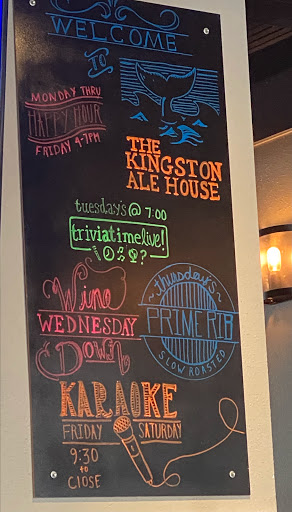 WELCOME
TO
THE
KINGSTON
ALE HOUSE
MONDAY THRU
HAPPY HOUR
FRIDAY 4-7PM
tuesday's @ 7:00
triviatimelive!
?
Wine
WEDNESDAY
Down
Thursday's
PRIME RIB
SLOW ROASTED
KARAOKE
FRIDAY SATURDAY
9:30
to
CLOSE